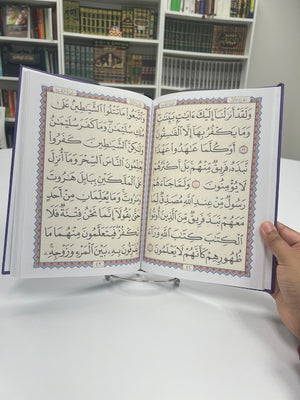 وَلَقَدْ أَنزَلْنَا إِلَيْكَ ءَايَٰتٍۭ بَيِّنَٰتٍ
وَمَا يَكْفُرُ بِهَا إِلَّا الْفَٰسِقُونَ
أَوَكُلَّمَا عَٰهَدُوا عَهْدًا
نَّبَذَهُ فَرِيقٌ مِّنْهُم بَلْ أَكْثَرُهُمْ
لَا يُؤْمِنُونَ وَلَمَّا جَاءَهُمْ
رَسُولٌ مِّنْ عِندِ اللَّهِ مُصَدِّقٌ لِّمَا
مَعَهُمْ نَبَذَ فَرِيقٌ مِّنَ الَّذِينَ أُوتُوا
الْكِتَٰبَ كِتَٰبَ اللَّهِ وَرَاءَ
ظُهُورِهِمْ كَأَنَّهُمْ لَا يَعْلَمُونَ
وَاتَّبَعُوا مَا تَتْلُوا الشَّيَٰطِينُ عَلَىٰ
مُلْكِ سُلَيْمَٰنَ وَمَا كَفَرَ سُلَيْمَٰنُ
وَلَٰكِنَّ الشَّيَٰطِينَ كَفَرُوا
يُعَلِّمُونَ النَّاسَ السِّحْرَ وَمَا أُنزِلَ
عَلَى الْمَلَكَيْنِ بِبَابِلَ هَٰرُوتَ
وَمَٰرُوتَ وَمَا يُعَلِّمَانِ مِنْ أَحَدٍ
حَتَّىٰ يَقُولَا إِنَّمَا نَحْنُ فِتْنَةٌ فَلَا
تَكْفُرْ فَيَتَعَلَّمُونَ مِنْهُمَا مَا
يُفَرِّقُونَ بِهِ بَيْنَ الْمَرْءِ وَزَوْجِهِ